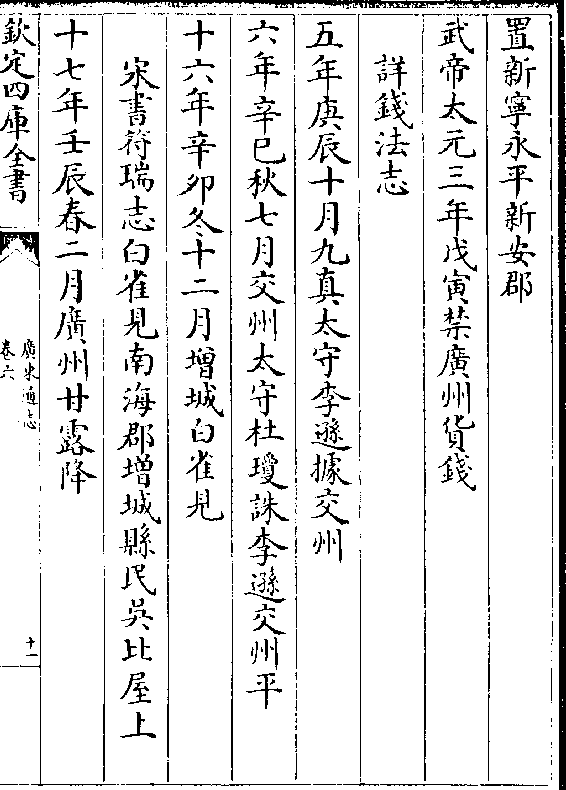 置新寧永平新安郡
武帝太元三年戊寅禁廣州貨錢
詳錢法志
五年庚辰十月九真太守李遜據交州
六年辛巳秋七月交州太守杜瓊誅李遜交州平
十六年辛卯冬十二月增城白雀見
宋書符瑞志白雀見南海郡增城縣民吳比屋上
十七年壬辰春二月廣州甘露降
欽定四庫全書
廣東通志
卷六
十一